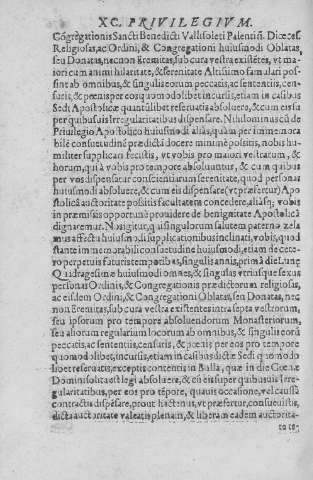 XC. PRIVILEGIVM.
Cōgrēgationis Sancti Benedicti Vallisoleti Palentiñ. Diœces.
Religiosas, ac Ordini, & Congregationi huiusmodi Oblatas,
seu Donatas, nec non Eremitas, sub cura vestra existētes, vt ma
iori cum animi hilaritate, & serenitate Altissimo famulari pos-
sint ab omnibus, & singulis eorum peccatis, ac sententiis, cen-
suris, & pœnis per eos quomodolibet incursis, etiam in casibus
Sedi Apostolicæ quantūlibet reseruatis absoluere, & cum eis su
per quibusuis Irregularitatibus dispensare. Nihilominus cū de
Priuilegio Apostolico huiusmodi aliàs, quàm per immemora
bilē consuetudinē prædictā docere minimè possitis, nobis hu-
militer supplicari fecistis, vt vobis pro maiori vestrarum, &
horum, quià vobis pro tempore absoluuntur, & cum quibus
per vos dispensatur conscientiarum serenitate, quod personas
huiusmodi absoluere, & cum eis dispensare (vt præfertur) Apo
stolica auctoritate possitis facultatem concedere, aliasq; vobis
in præmissis opportunè prouidere de benignitate Apostolica
dignaremur. Nos igitur, qui singulorum salutem paterno zela
mus affectu huiusmodi, supplicationibus inclinati, vobis, quod
stante immemorabili consuetudine huiusmodi, etiam de cæte-
ro perpetuis futuris temporibus, singulis annis, primā die Lunę
Quadragesimæ huiusmodi omnes, & singulas vtriusque sexus
personas Ordinis, & Congregationis prædictorum religiosas,
ac eisdem Ordini, & Congregationi Oblatas, seu Donatas, nec
non Eremitas, sub cura vestra existentes intra septa vestrorum,
seu ipsorum pro tempore absoluendorum Monasteriorum,
seu aliorum regularium locorum ab omnibus, & singulis eorū
peccatis, ac sententiis, censuris, & pœnis per eos pro tempore
quomodolibet, incursis, etiam in casibus dictæ Sedi quomodo
libet reseruatis, exceptis contentis in Bulla, quæ in die Cœnæ
Domini solita est legi absoluere, & cū eis super quibusuis Irre-
gularitatibus, per eos pro tēpore, quauis occasione, vel caussa
contractis dispēsare, prout hactenus, vt præfertur, consueuistis,
dicta auctoritate valeatis plenam, & liberam eadem auctorita-
te te-